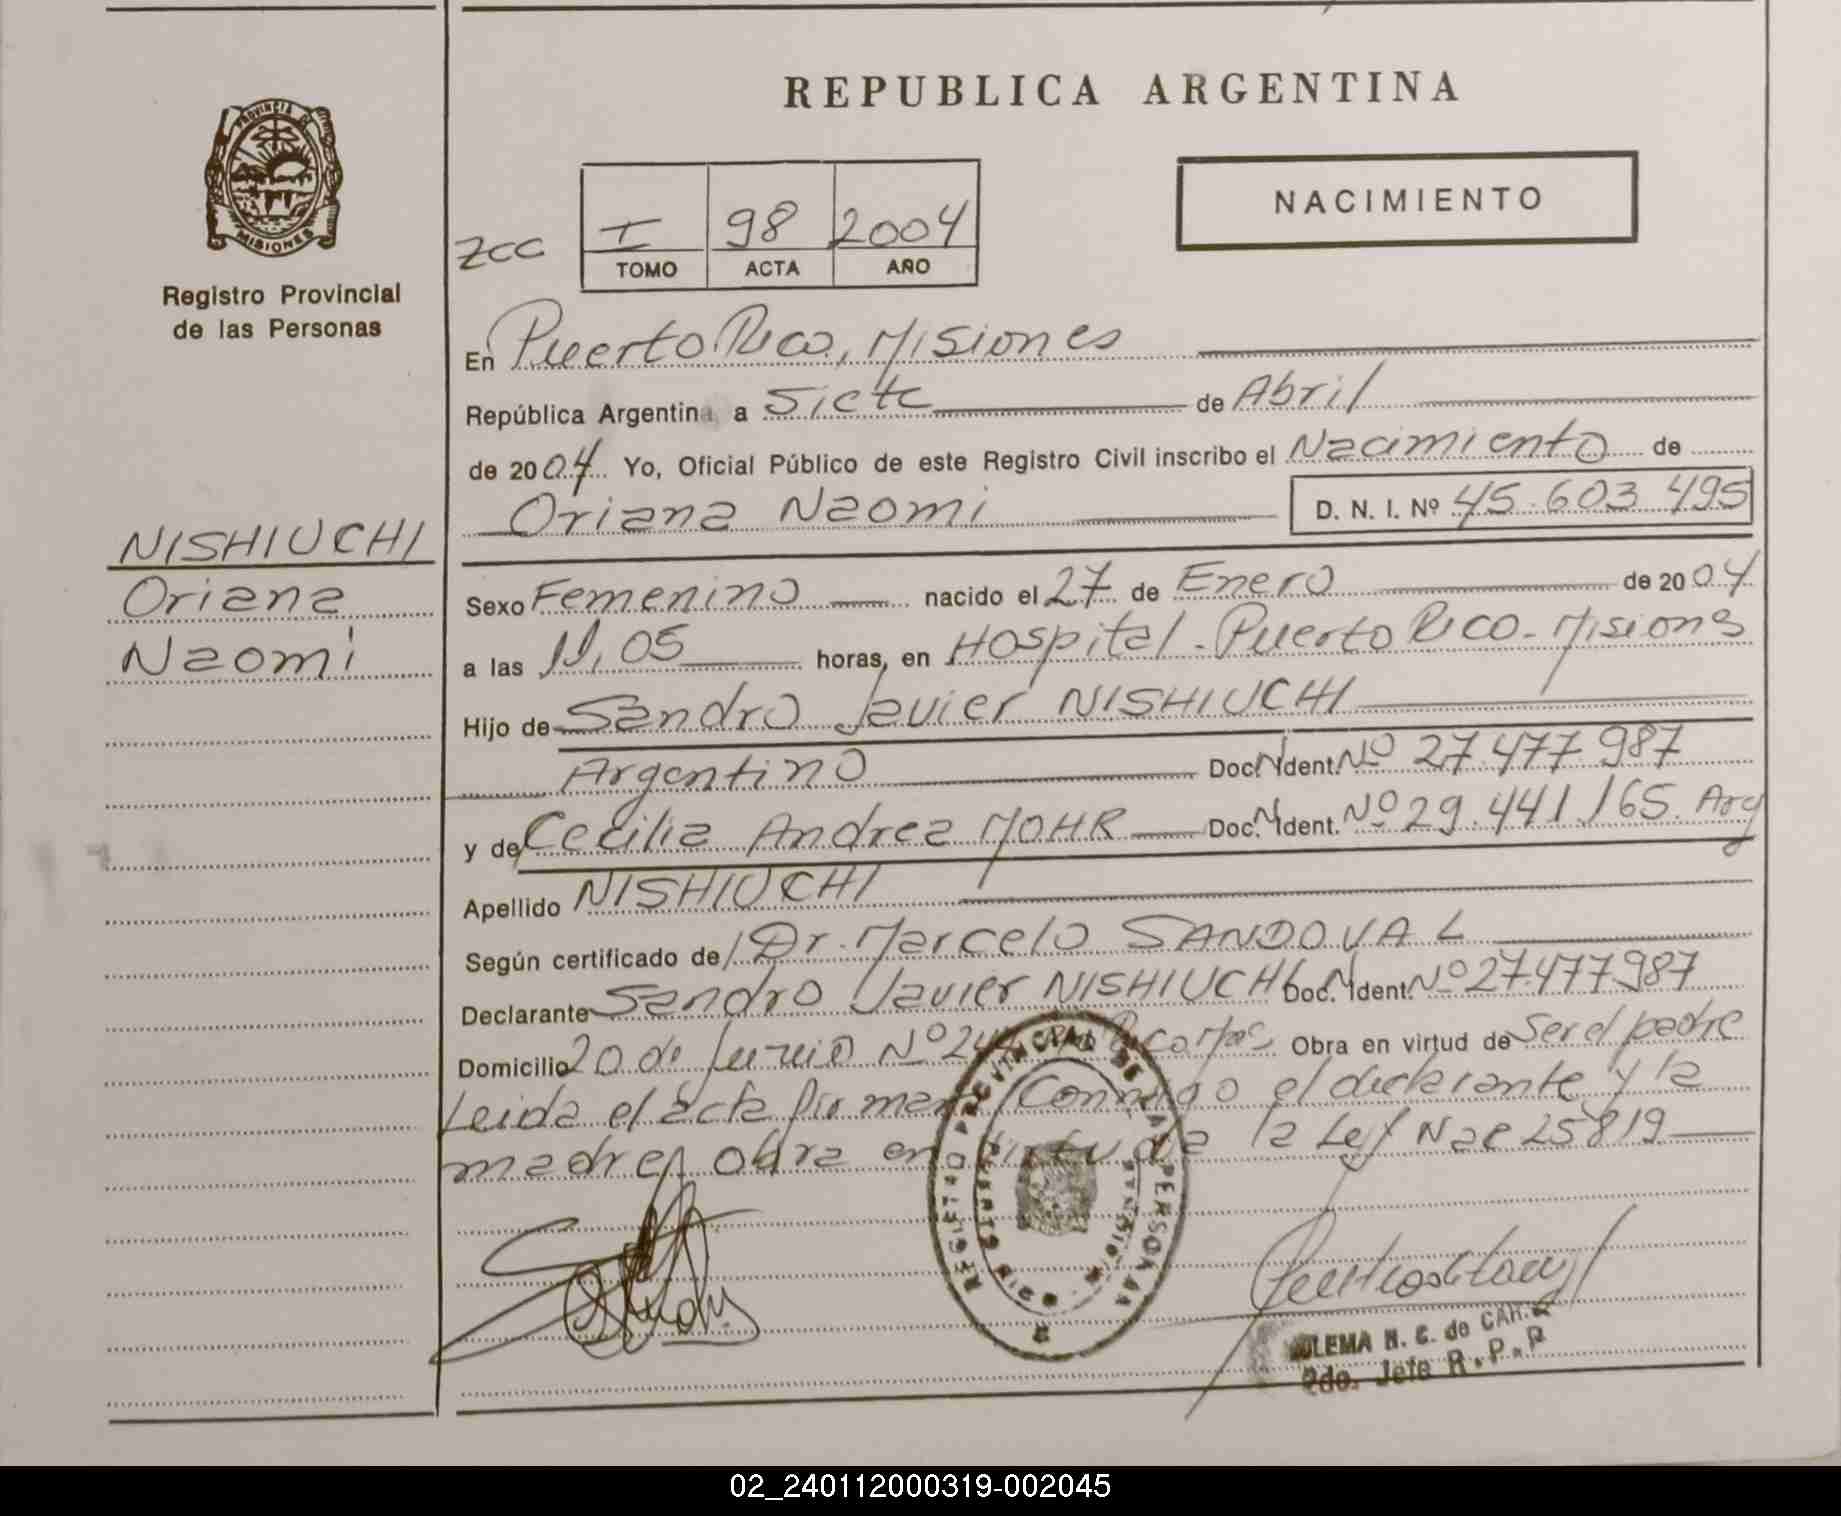 REPUBLICA ARGENTINA
PROVINCIA DE
MISIONES
Registro Provincial
de las Personas
NACIMIENTO
zcc
I 98 2004
TOMO ACTA AÑO
En Puerto Rico, Misiones
República Argentina a Siete de Abril
de 2004 Yo, Oficial Público de este Registro Civil inscribo el Nacimiento de
Oriana Naomi D. N. I. Nº 45.603.495
NISHIUCHI
Oriana
Naomi
Sexo Femenino nacido el 27 de Enero de 2004
a las 11,05 horas, en Hospital-Puerto Rico-Misiones
Hijo de Sandro Javier NISHIUCHI
Argentino Doc. N Ident. Nº 27.477.987
y de Cecilia Andrea MOHR Doc. N Ident. Nº 29.441.165. Arg
Apellido NISHIUCHI
Según certificado de Dr. Marcelo SANDOVAL
Declarante Sandro Javier NISHIUCHI Doc. N Ident. Nº 27.477.987
Domicilio 20 de Junio Nº Obra en virtud de Ser el padre
Leida el acta firman Conmigo el declarante y la
madre, obra en virtud a la Ley Nac 25819
REGISTRO PROVINCIAL DE LAS PERSONAS
H. C. de
2do. Jefe R.P.P
02_240112000319-002045